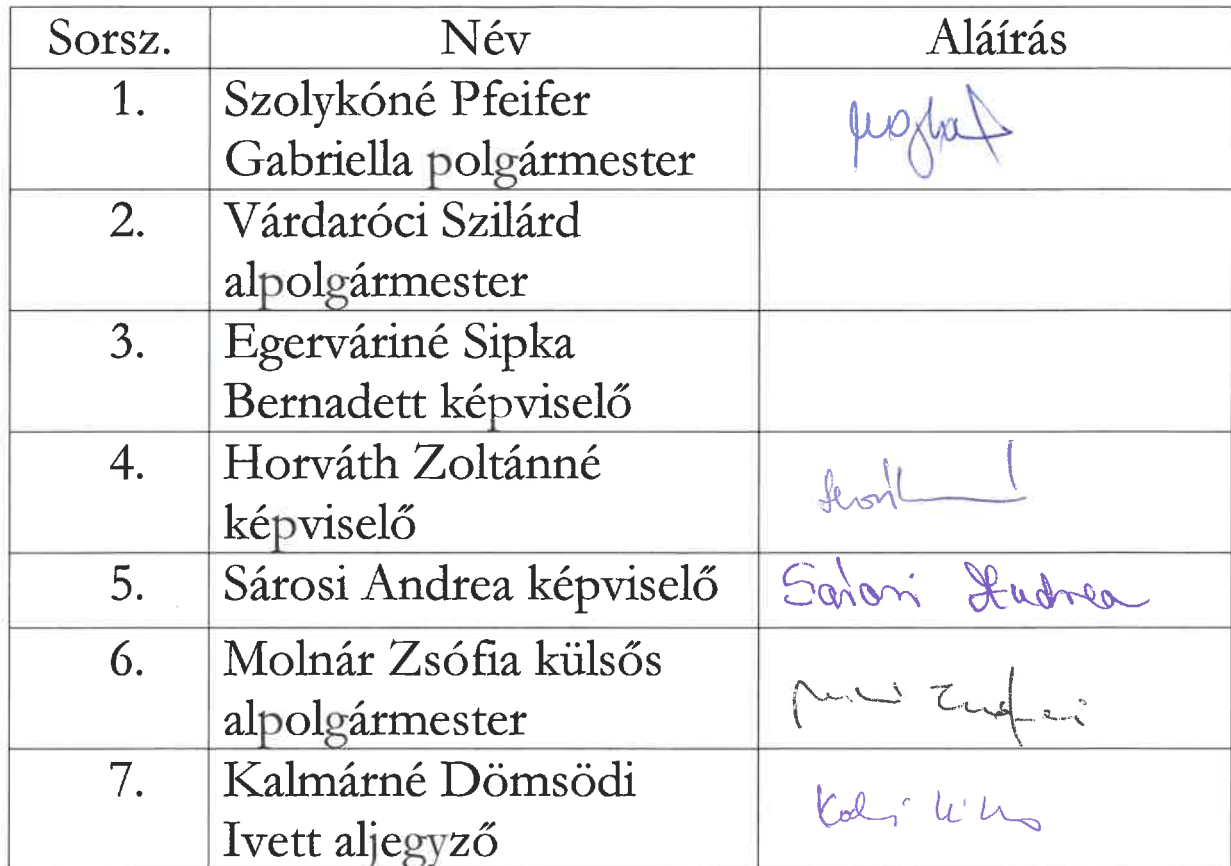 Sorsz. Név Aláírás
1. Szolykóné Pfeifer
Gabriella polgármester
2. Várdaróci Szilárd
alpolgármester
3. Egerváriné Sipka
Bernadett képviselő
4. Horváth Zoltánné
képviselő
5. Sárosi Andrea képviselő Sárosi Andrea
6. Molnár Zsófia külsős
alpolgármester
7. Kalmárné Dömsödi
Ivett aljegyző